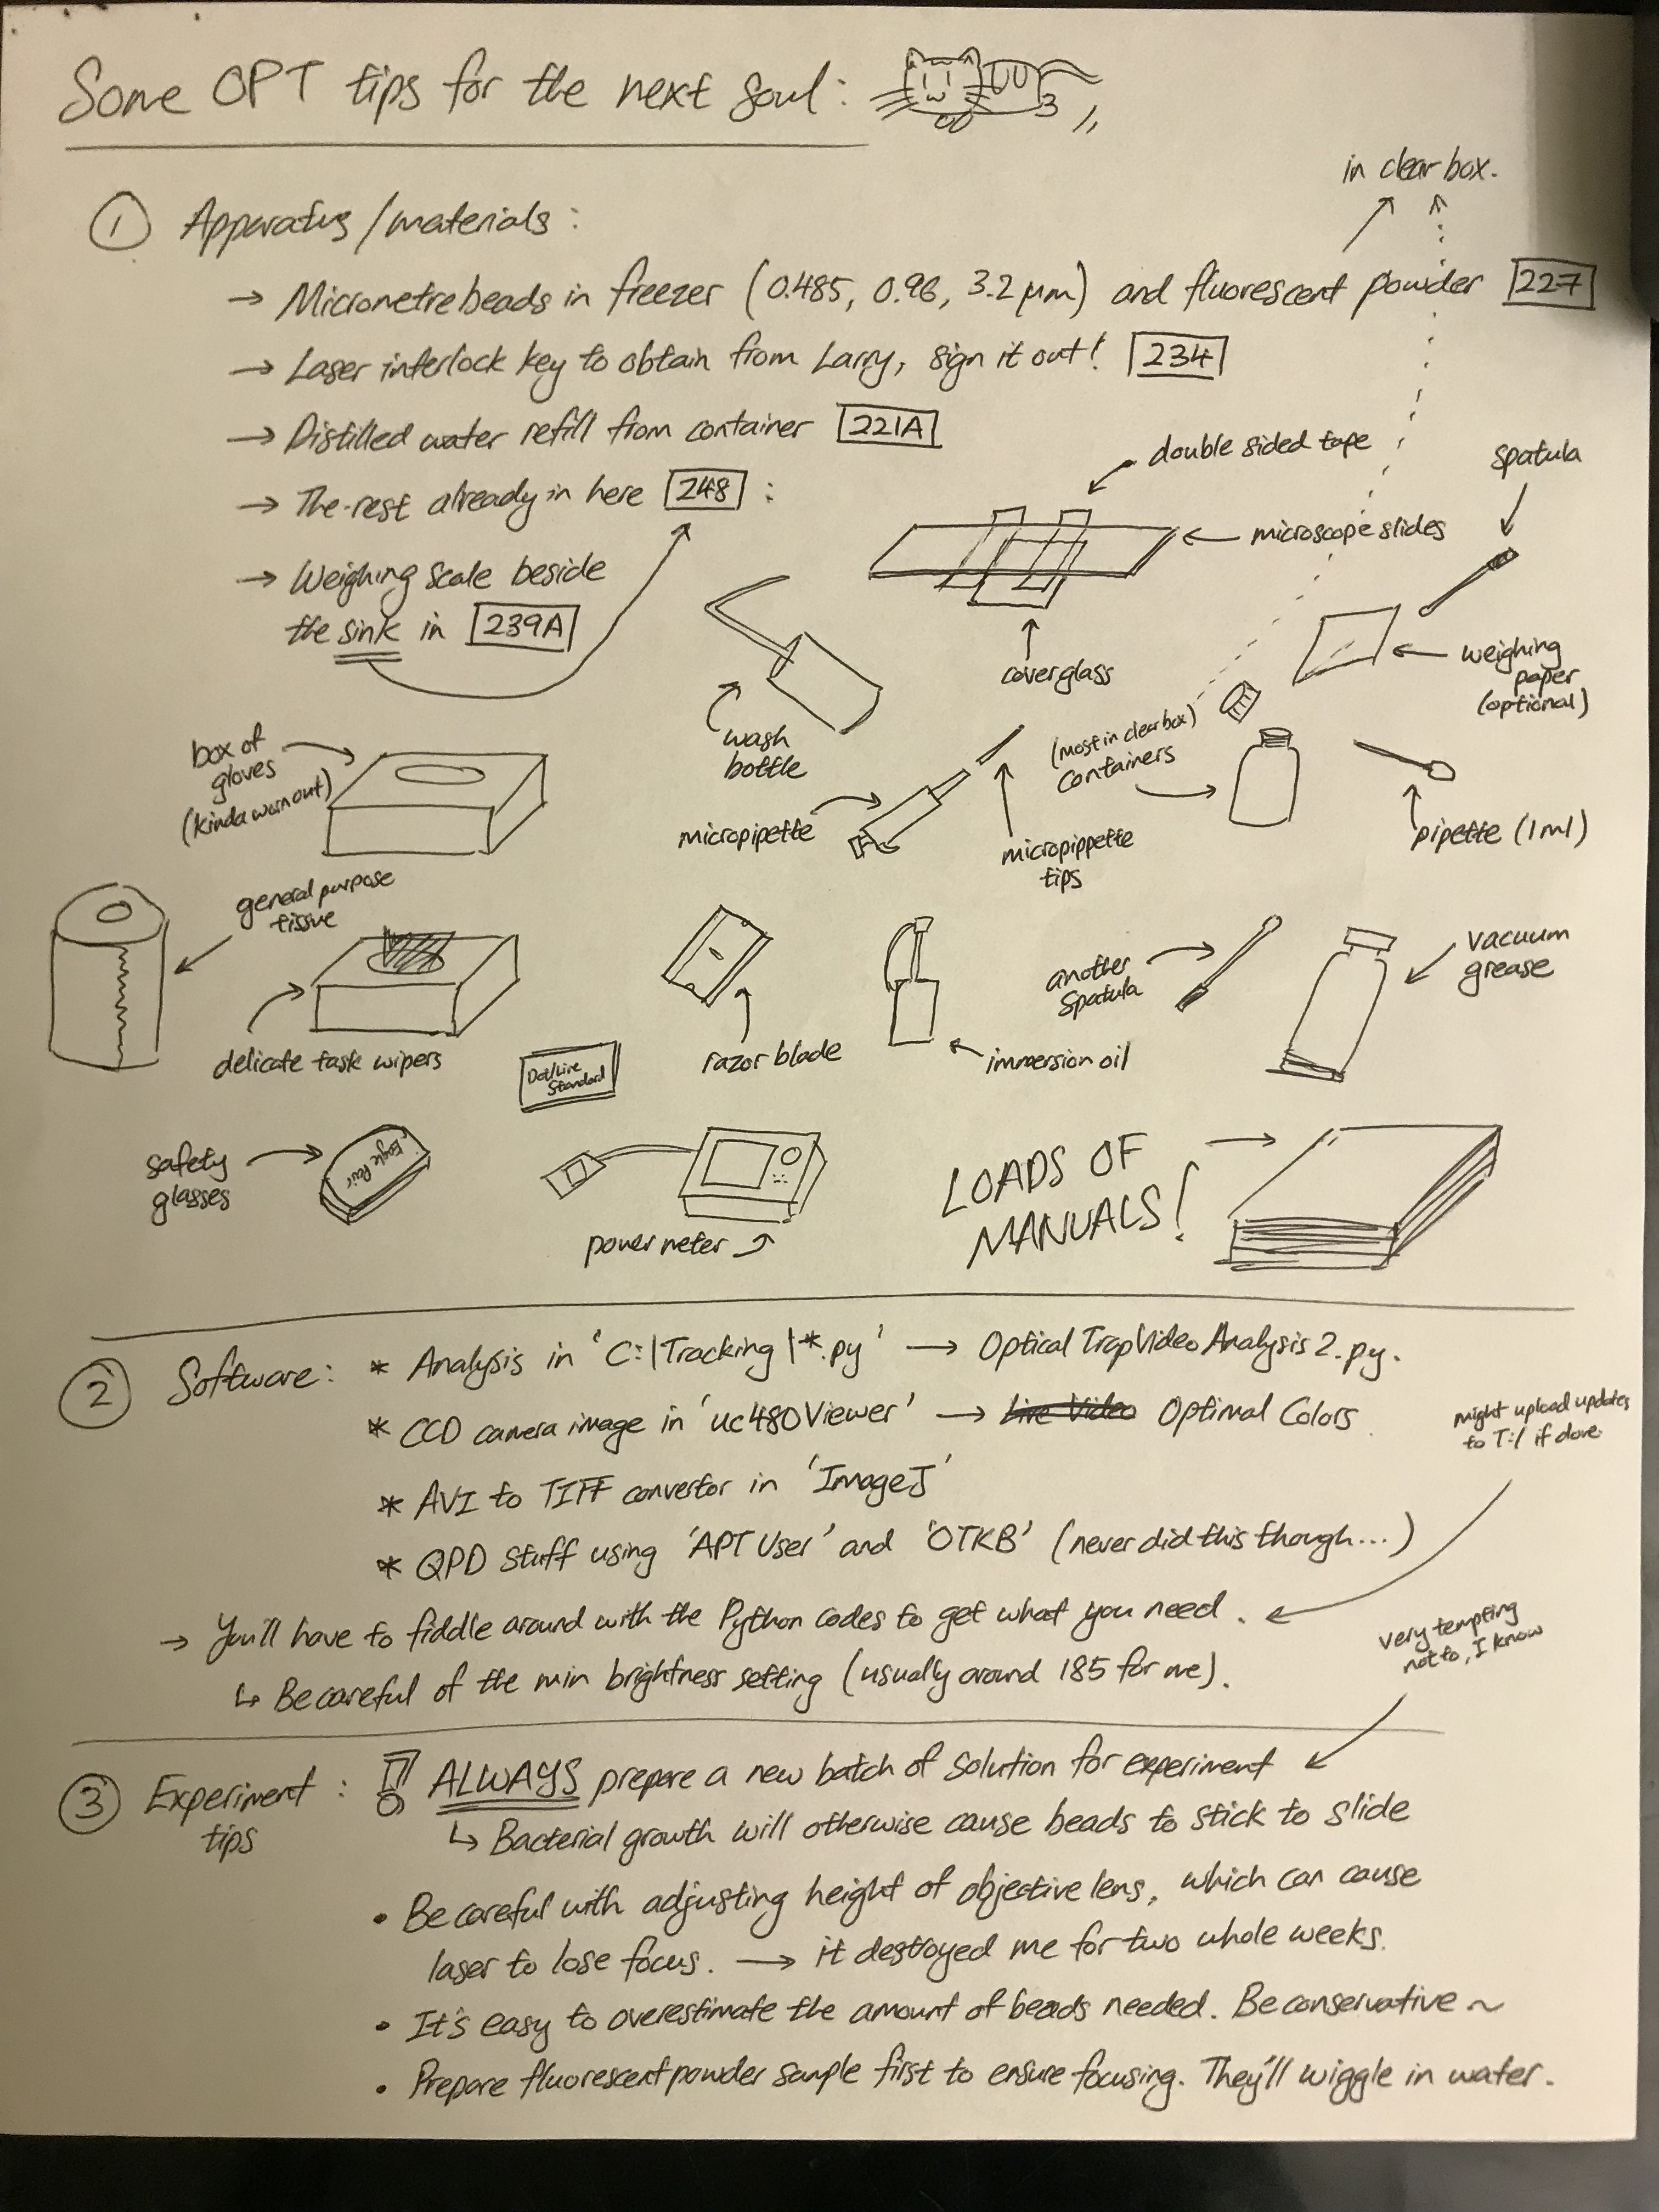 Some OPT tips for the next soul:
in clear box.
① Apparatus/materials:
→ Micrometre beads in freezer (0.485, 0.96, 3.2 μm) and fluorescent powder 227
→ Laser interlock key to obtain from Larry, sign it out! 234
→ Distilled water refill from container 221A
→ The rest already in here 248 :
→ Weighing scale beside
the sink in 239A
double sided tape
spatula
microscope slides
coverglass
weighing
paper
(optional)
wash
bottle
box of
gloves
(kinda worn out)
micropipette
micropippette
tips
(most in clear box)
containers
pipette (1ml)
general purpose
tissue
delicate task wipers
razor blade
immersion oil
another
spatula
vacuum
grease
Dot/Line
Standard
safety
glasses
Eagle Pair
power meter
LOADS OF
MANUALS!
② Software: * Analysis in 'C:|Tracking|*.py' → Optical TrapVideo Analysis2.py.
* CCD camera image in 'uc480Viewer' → Live Video Optimal Colors
might upload updates
to T:/ if done.
* AVI to TIFF convertor in 'ImageJ'
* QPD stuff using 'APT User' and 'OTKB' (never did this though...)
→ You'll have to fiddle around with the Python codes to get what you need.
↳ Be careful of the min brightness setting (usually around 185 for me).
very tempting
not to, I know
③ Experiment : ! ALWAYS prepare a new batch of solution for experiment
tips
↳ Bacterial growth will otherwise cause beads to stick to slide
• Be careful with adjusting height of objective lens, which can cause
laser to lose focus. → it destroyed me for two whole weeks.
• It's easy to overestimate the amount of beads needed. Be conservative ~
• Prepare fluorescent powder sample first to ensure focusing. They'll wiggle in water.